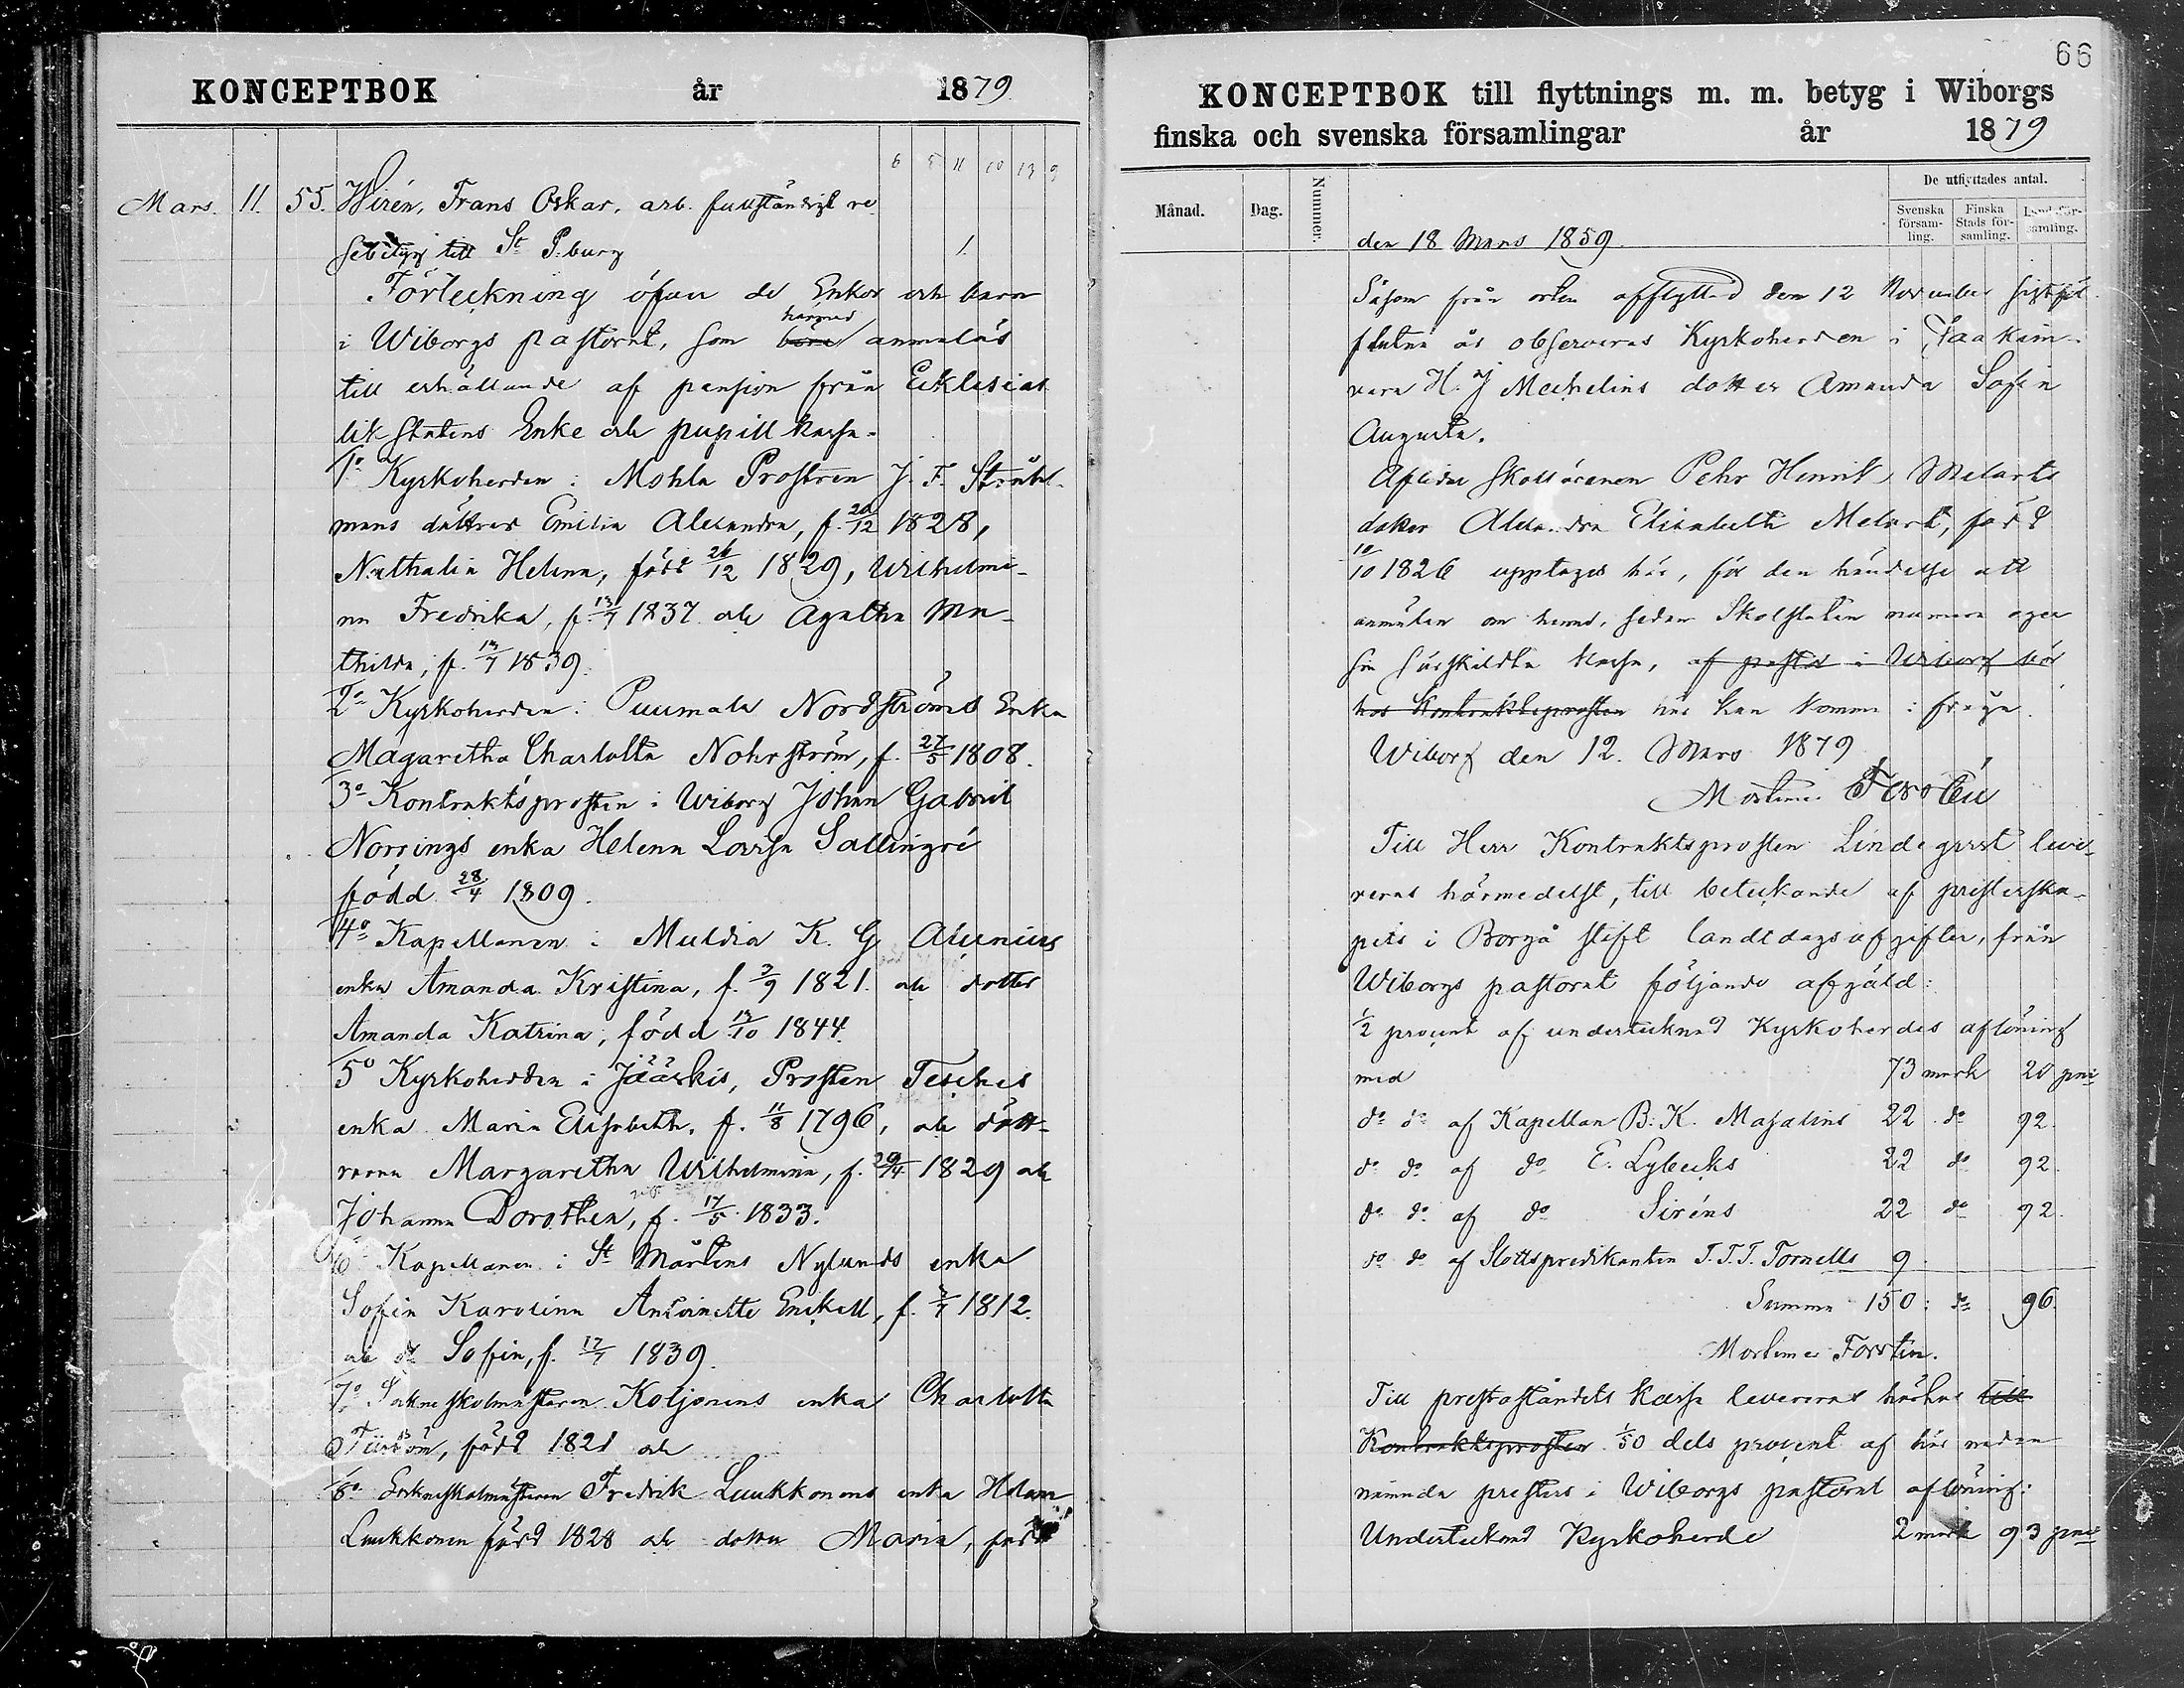 KONCEPTBOK år 1879
6 5 11 10 13 9
Mars. 11. 55. Wirén, Frans Oskar, arb. fullständigt re
sebetyg till St P:burg 1.
Förteckning öfver de Enkor och barn
i Wiborgs pastorat, som böra härmed anmälas
till erhållande af pension från Ecklesias
tik Statens Enke och pupill kassa.
1o Kyrkoherden i Mohla Prosten J. F. Stråhl-
mans döttrar Emilia Alexandra, f. 20/12 1828,
Nathalia Helena, född 26/12 1829, Wilhelmi-
na Fredrika, f. 13/7 1837 och Agatha Ma-
thilda, f. 13/7 1839.
2o Kyrkoherden i Puumala Nordströms Enka
Magaretha Charlotta Nohrström, f. 27/5 1808.
3o Kontraktsprosten i Wiborg Johan Gabriel
Norrings enka Helena Lovisa Sallingré
född 28/4 1809.
4o Kapellanen i Muldia K. G. Alcenius
enka Amanda Kristina, f. 3/9 1821. och dotter
Amanda Katrina, född 13/10 1844.
5o Kyrkoherden i Jääskis, Prosten Tesches
enka Maria Elisabeth, f. 11/8 1796, och dött-
rarna Margaretha Wilhelmina, f. 29/4 1829 och
Johanna Dorothea, f. 17/5 1833.
6o Kapellanen i St Mårtens Nylunds enka
Sofia Karolina Antoinette Enckell, f. 3/7 1812.
och dr Sofia, f. 17/7 1839.
7o Sockneskolmästaren Koljonens enka Charlotta
född 1821 och
8o Sockneskolmästaren Fredrik Luukkonens enka Helena
Luukkonen född 1828 och dotter Maria, född
66
KONCEPTBOK till flyttnings m. m. betyg i Wiborgs
finska och svenska församlingar år 1879
Månad. Dag. Nummer. De utflyttades antal.
Svenska försam-ling. Finska Stads för-samling. Land-för-samling.
den 18 Mars 1859.
Såsom från orten afflyttad den 12 November sistför
flutna år observeras Kyrkoherden i Jaakkim-
vara H. J. Mechelins dotter Amanda Sofia
Augusta.
Aflidne Skolläraren Pehr Henrik Melarts
dotter Alexandra Elisabeth Melart, född
10/10 1826 upptages här, för den händelse att
anmälan om henne, sedan Skolstaten numera eger
sin särskildta kassa, af prosten i Wiborg bör
hos Kontraktsprosten här kan komma i fråga.
Wiborg den 12. Mars 1879
Mortimer Forstén
Till Herr Kontraktsprosten Lindeqvist leve-
reras härmedelst, till betäckande af presterska-
pets i Borgå stift landtdagsafgifter, från
Wiborgs pastorat följande afgäld:
1/2 procent af undertecknad Kyrkoherdes aflöning
med 73 mark 20 pni
do do af Kapellan B. K. Majalins 22 do 92.
do do af do E. Lybecks 22 do 92.
do do af do Siréns 22 do 92.
do do af Slottspredikanten T. T. T. Tornells 9
Summa 150: do 96.
Mortimer Forstén.
Till prestaståndets kassa levereras härhos till
Kontraktsprosten 1/50 dels procent af här nedan
nämnda presters i Wiborgs pastorat aflöning:
Undertecknad Kyrkoherde 2 mark 93 pni